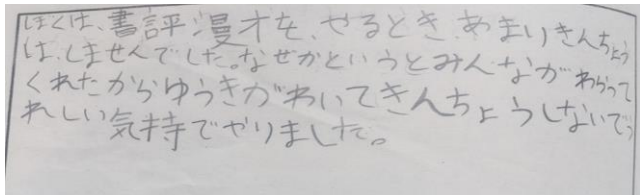 ぼくは、書評漫才を、やるとき、あまりきんちょう
は、しませんでした。なぜかというとみんながわらって
くれたからゆうきがわいてきんちょうしないでう
れしい気持でやりました。